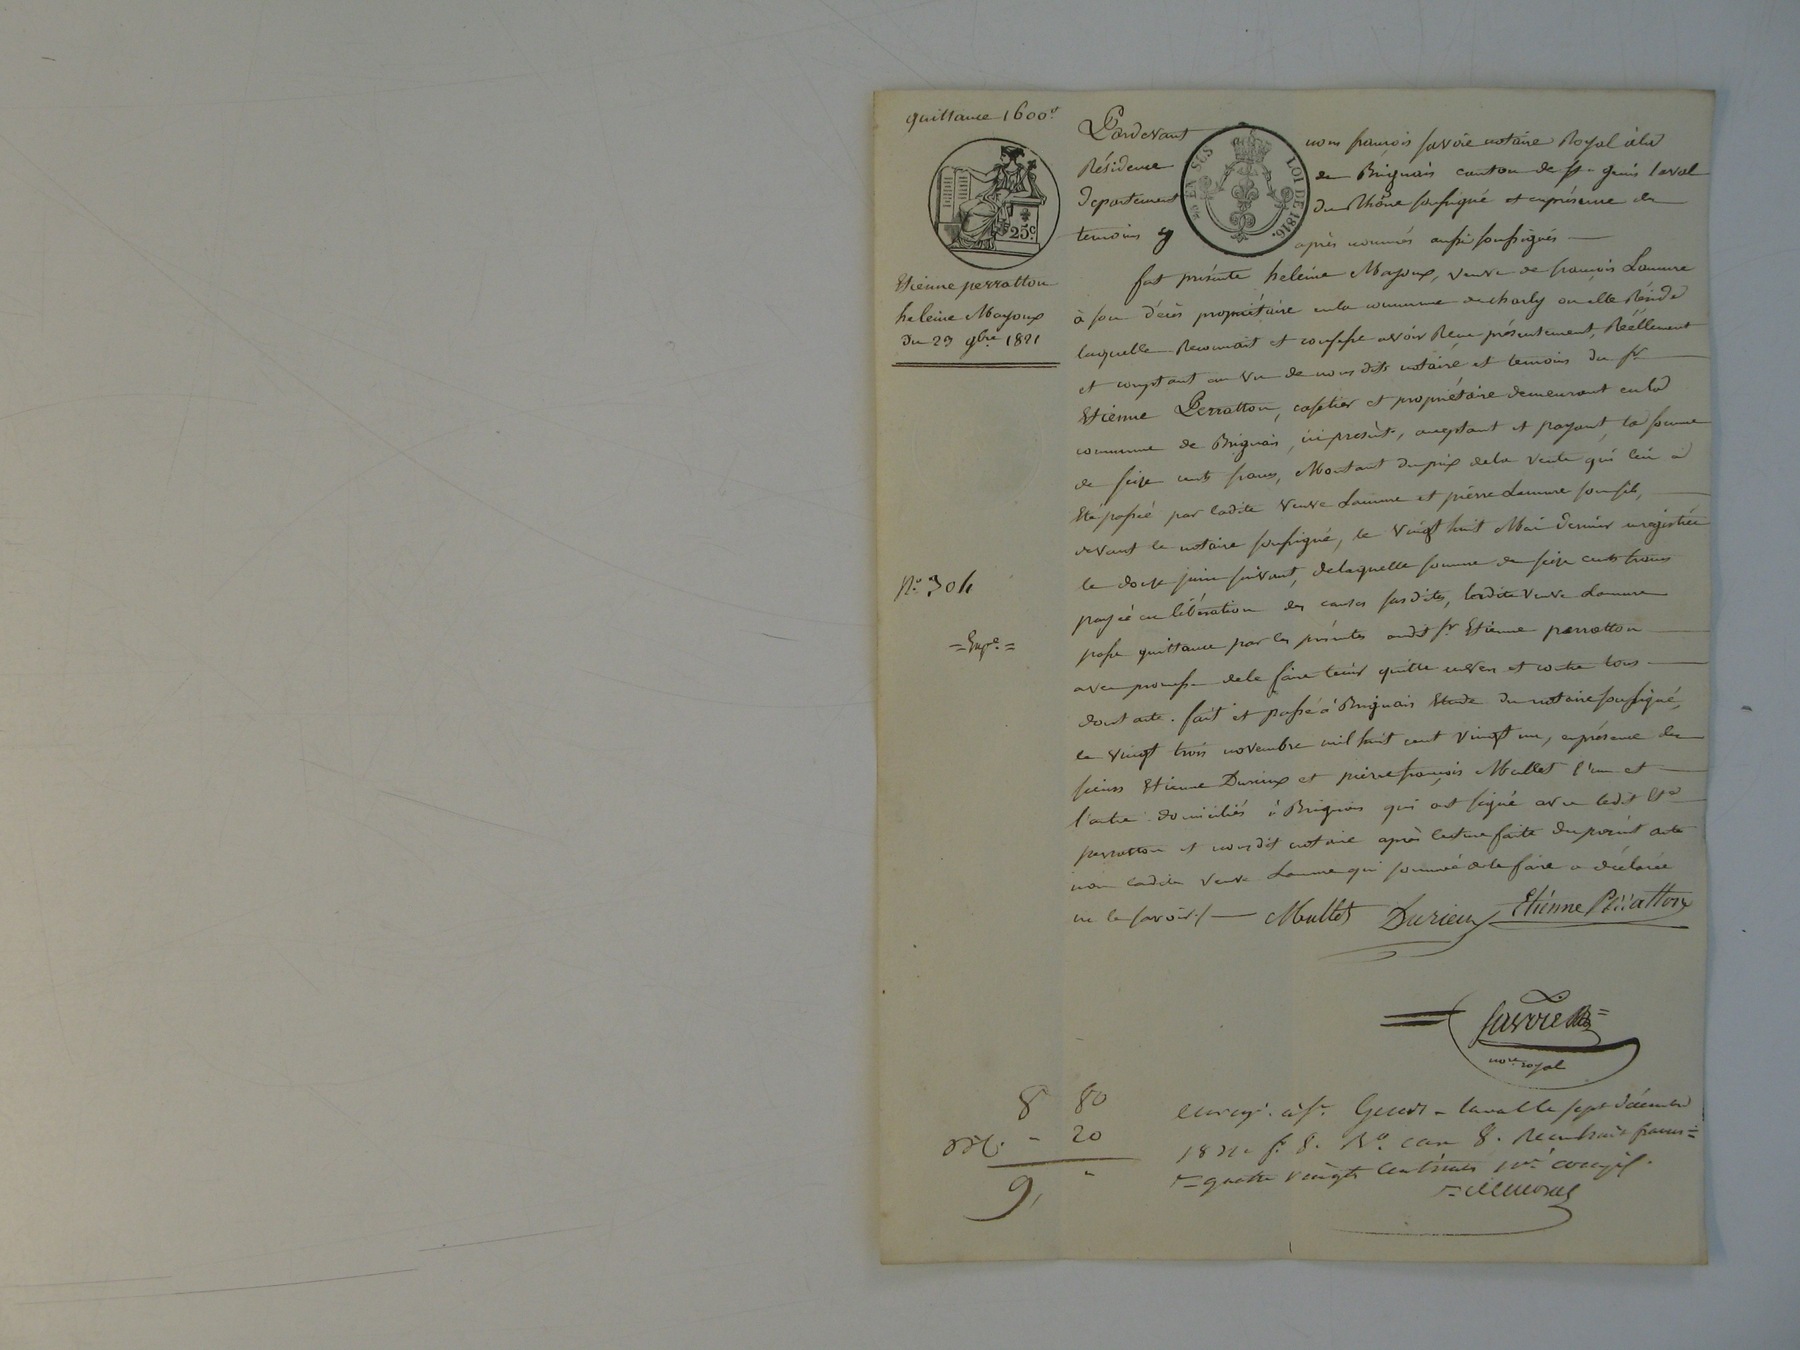 quittance 1600f
25c
Etienne perratton
heleine Mayoux
du 23 9bre 1821
Nº 304
=Exp.e=
Pardevant EN SUS LOI DE 1816. nous françois savoie notaire Royal à la
Résidence de Brignais canton de St. genis laval
departement du Rhône soussigné et en présence des
temoins cy après nommés aussi soussignés
fut présente heleine Mayoux, veuve de françois Lamure
à son décès propriétaire en la commune de charly ou elle Réside
laquelle Reconnait et confesse avoir Recu présentement, Réellement
et comptant au vu de nous dits notaire et temoins du sr
Etienne Perratton, cafetier et propriétaire demeurant en la
commune de Brignais, ici présent, acceptant et payant, la somme
de seize cents francs, Montant du prix de la vente qui lui a
Eté passée par ladite veuve Lamure et pierre Lamure son fils,
devant le notaire soussigné, le vingt huit Mai dernier enregistrée
le douze juin suivant, de laquelle somme de seize cents francs
payée en libération des causes susdites, ladite veuve Lamure
passe quittance par les présentes audit sr Etienne perratton
avec promesse de le faire tenir quitte envers et contre tous
dont acte. fait et passé à Brignais Etude du notaire soussigné,
le vingt trois novembre mil huit cent vingt un, en présence des
sieurs Etienne Durieux et pierre françois Mallet l'un et
l'autre domiciliés à Brignais qui ont signé avec ledit Et.e
perratton et nous dit notaire après lecture faite du présent acte
non ladite veuve Lamure qui sommée de le faire a déclarée
ne le savoir./. Mallet Durieux Etiénne Pérratton
savoie
nore royal
8 80
20
9,
enregr. à St. Genis-laval le sept décembre
1821 f. 8. Vo case 8. Recu huit francs
quatre vingts centimes 10e compris.